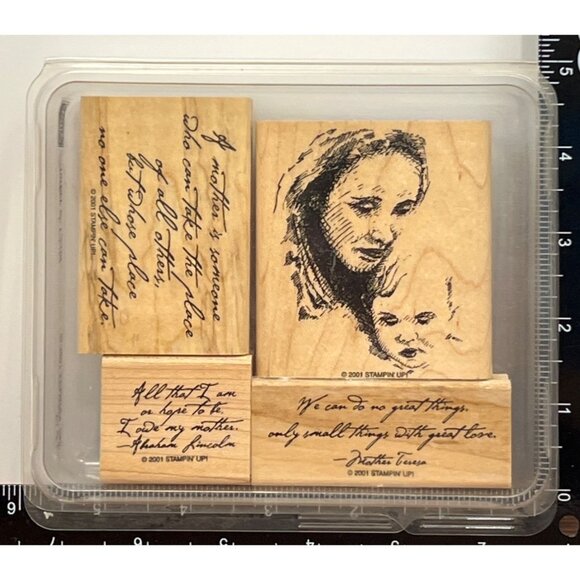 A mother is someone
who can take the place
of all others,
but whose place
no one else can take.
© 2001 STAMPIN' UP!
© 2001 STAMPIN' UP!
All that I am
or hope to be,
I owe my mother.
—Abraham Lincoln
© 2001 STAMPIN' UP!
We can do no great things,
only small things with great love.
—Mother Teresa
© 2001 STAMPIN' UP!
5
4
3
2
1
0
6
5
4
3
2
1